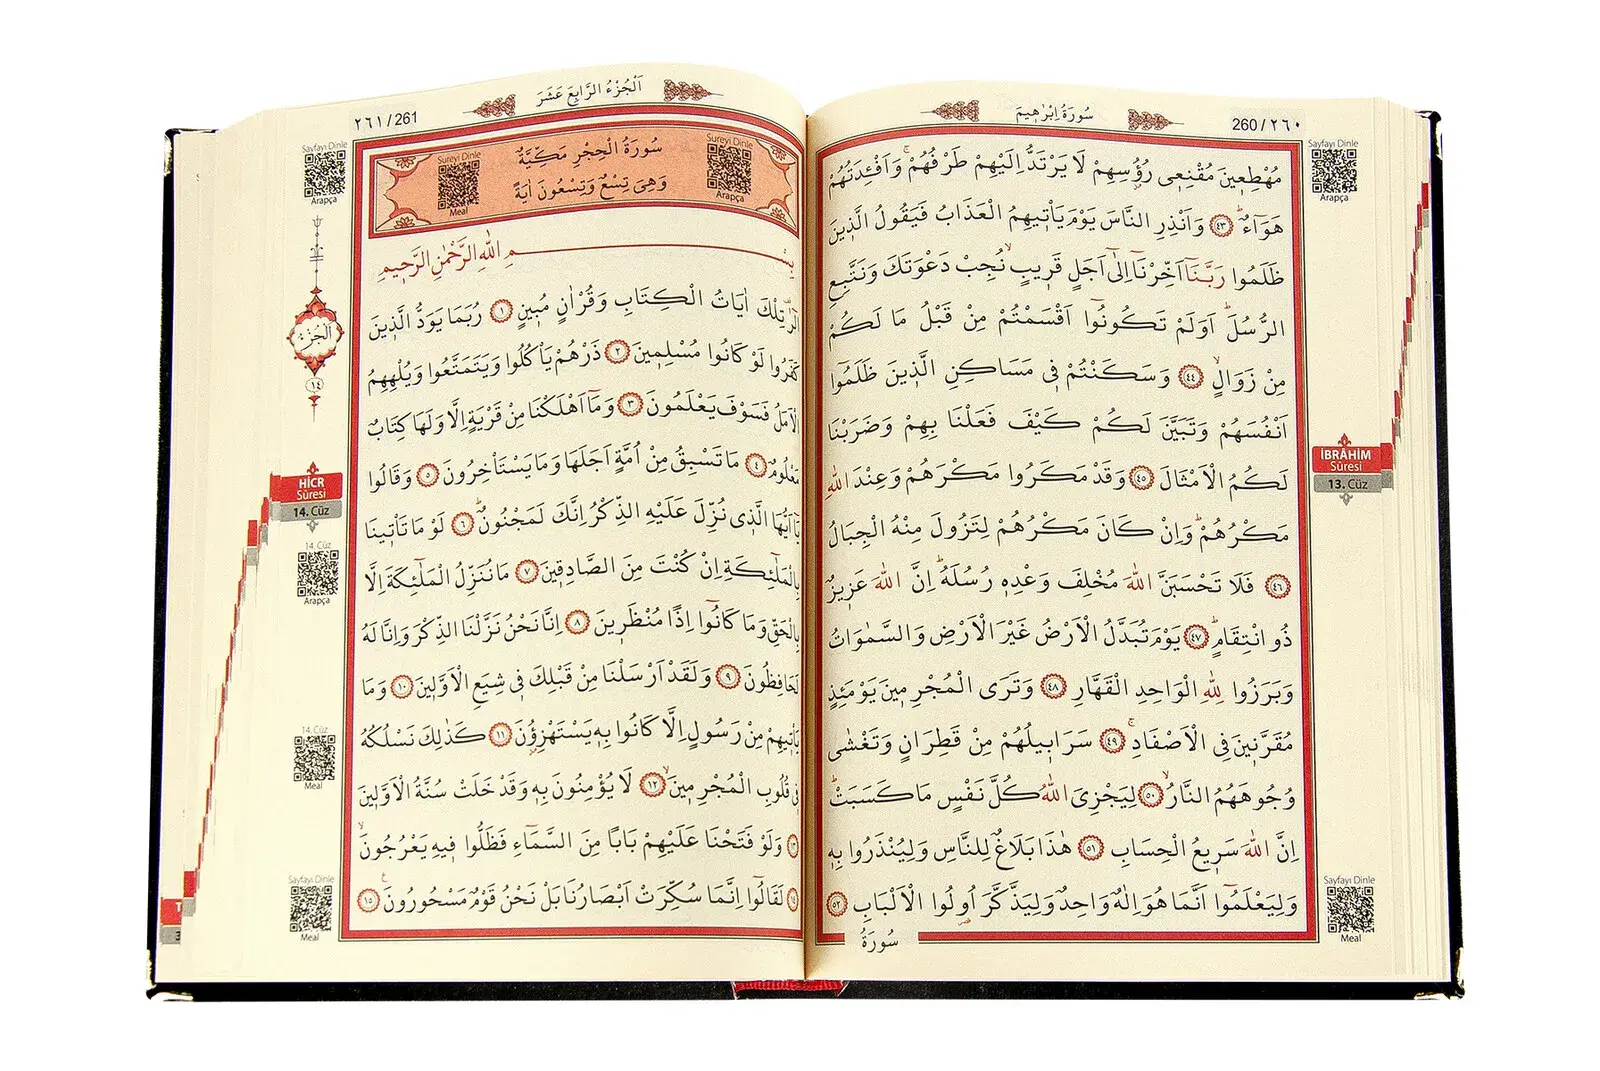 سُورَةُ اِبْرٰهِيمَ
260/٢٦٠
Sayfayı Dinle
Arapça
مُهْطِعِينَ مُقْنِعِى رُؤُسِهِمْ لَا يَرْتَدُّ اِلَيْهِمْ طَرْفُهُمْۚ وَاَفْـِٔدَتُهُمْ
هَوَٓاءٌۜ ﴿٤٣﴾ وَاَنْذِرِ النَّاسَ يَوْمَ يَأْتِيهِمُ الْعَذَابُ فَيَقُولُ الَّذِينَ
ظَلَمُوا رَبَّنَٓا اَخِّرْنَٓا اِلٰٓى اَجَلٍ قَرِيبٍۙ نُجِبْ دَعْوَتَكَ وَنَتَّبِعِ
الرُّسُلَۜ اَوَلَمْ تَكُونُٓوا اَقْسَمْتُمْ مِنْ قَبْلُ مَا لَكُمْ
مِنْ زَوَالٍۙ ﴿٤٤﴾ وَسَكَنْتُمْ فِى مَسَاكِنِ الَّذِينَ ظَلَمُٓوا
اَنْفُسَهُمْ وَتَبَيَّنَ لَكُمْ كَيْفَ فَعَلْنَا بِهِمْ وَضَرَبْنَا
لَكُمُ الْاَمْثَالَ ﴿٤٥﴾ وَقَدْ مَكَرُوا مَكْرَهُمْ وَعِنْدَ اللّٰهِ
مَكْرُهُمْۜ وَاِنْ كَانَ مَكْرُهُمْ لِتَزُولَ مِنْهُ الْجِبَالُ
﴿٤٦﴾ فَلَا تَحْسَبَنَّ اللّٰهَ مُخْلِفَ وَعْدِهِ رُسُلَهُۜ اِنَّ اللّٰهَ عَزِيزٌ
ذُو انْتِقَامٍۜ ﴿٤٧﴾ يَوْمَ تُبَدَّلُ الْاَرْضُ غَيْرَ الْاَرْضِ وَالسَّمٰوَاتُ
وَبَرَزُوا لِلّٰهِ الْوَاحِدِ الْقَهَّارِ ﴿٤٨﴾ وَتَرَى الْمُجْرِمِينَ يَوْمَئِذٍ
مُقَرَّنِينَ فِى الْاَصْفَادِۚ ﴿٤٩﴾ سَرَابِيلُهُمْ مِنْ قَطِرَانٍ وَتَغْشٰى
وُجُوهَهُمُ النَّارُۙ ﴿٥٠﴾ لِيَجْزِىَ اللّٰهُ كُلَّ نَفْسٍ مَا كَسَبَتْۜ
اِنَّ اللّٰهَ سَرِيعُ الْحِسَابِ ﴿٥١﴾ هٰذَا بَلَاغٌ لِلنَّاسِ وَلِيُنْذَرُوا بِهِ
وَلِيَعْلَمُٓوا اَنَّمَا هُوَ اِلٰهٌ وَاحِدٌ وَلِيَذَّكَّرَ اُولُوا الْاَلْبَابِ ﴿٥٢﴾
سُورَةُ
İBRÂHİM
Sûresi
13. Cüz
Sayfayı Dinle
Meal
اَلْجُزْءُ الرَّابِعَ عَشَرَ
٢٦١/261
Sayfayı Dinle
Arapça
Sureyi Dinle
Arapça
سُورَةُ الْحِجْرِ مَكِّيَّةٌ
وَهِىَ تِسْعٌ وَتِسْعُونَ اٰيَةً
Sureyi Dinle
Meal
بِسْمِ اللّٰهِ الرَّحْمٰنِ الرَّحِيمِ
الٓرٰ۠ تِلْكَ اٰيَاتُ الْكِتَابِ وَقُرْاٰنٍ مُبِينٍ ﴿١﴾ رُبَمَا يَوَدُّ الَّذِينَ
كَفَرُوا لَوْ كَانُوا مُسْلِمِينَ ﴿٢﴾ ذَرْهُمْ يَأْكُلُوا وَيَتَمَتَّعُوا وَيُلْهِهِمُ
الْاَمَلُ فَسَوْفَ يَعْلَمُونَ ﴿٣﴾ وَمَٓا اَهْلَكْنَا مِنْ قَرْيَةٍ اِلَّا وَلَهَا كِتَابٌ
مَعْلُومٌ ﴿٤﴾ مَا تَسْبِقُ مِنْ اُمَّةٍ اَجَلَهَا وَمَا يَسْتَأْخِرُونَ ﴿٥﴾ وَقَالُوا
يَٓا اَيُّهَا الَّذِى نُزِّلَ عَلَيْهِ الذِّكْرُ اِنَّكَ لَمَجْنُونٌۜ ﴿٦﴾ لَوْ مَا تَأْتِينَا
بِالْمَلٰٓئِكَةِ اِنْ كُنْتَ مِنَ الصَّادِقِينَ ﴿٧﴾ مَا نُنَزِّلُ الْمَلٰٓئِكَةَ اِلَّا
بِالْحَقِّ وَمَا كَانُٓوا اِذًا مُنْظَرِينَ ﴿٨﴾ اِنَّا نَحْنُ نَزَّلْنَا الذِّكْرَ وَاِنَّا لَهُ
لَحَافِظُونَ ﴿٩﴾ وَلَقَدْ اَرْسَلْنَا مِنْ قَبْلِكَ فِى شِيَعِ الْاَوَّلِينَ ﴿١٠﴾ وَمَا
يَأْتِيهِمْ مِنْ رَسُولٍ اِلَّا كَانُوا بِهِ يَسْتَهْزِؤُنَ ﴿١١﴾ كَذٰلِكَ نَسْلُكُهُ
فِى قُلُوبِ الْمُجْرِمِينَۙ ﴿١٢﴾ لَا يُؤْمِنُونَ بِهِ وَقَدْ خَلَتْ سُنَّةُ الْاَوَّلِينَ
﴿١٣﴾ وَلَوْ فَتَحْنَا عَلَيْهِمْ بَابًا مِنَ السَّمَٓاءِ فَظَلُّوا فِيهِ يَعْرُجُونَۙ
﴿١٤﴾ لَقَالُٓوا اِنَّمَا سُكِّرَتْ اَبْصَارُنَا بَلْ نَحْنُ قَوْمٌ مَسْحُورُونَ۟ ﴿١٥﴾
اَلْجُزْءُ
١٤
HİCR
Sûresi
14. Cüz
14. Cüz
Arapça
14. Cüz
Meal
Sayfayı Dinle
Meal